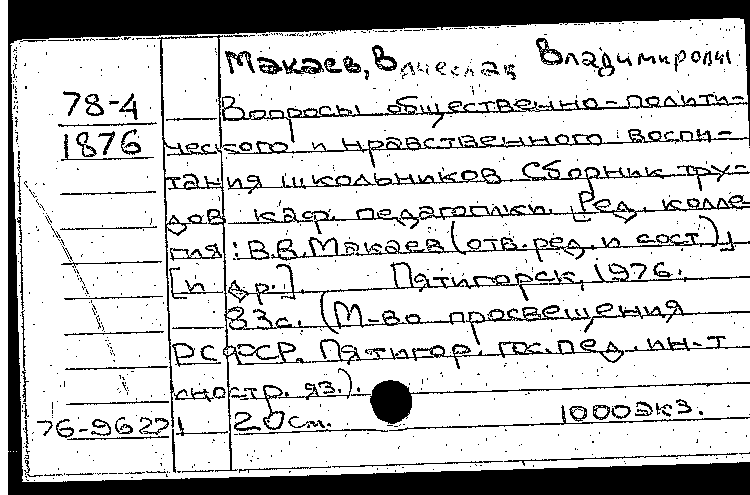 Макаев, Вячеслав Владимирович
78-4 Вопросы общественно-полити-
1876 ческого и нравственного воспи-
тания школьников. Сборник тру-
дов каф. педагогики. [Ред. колле
гия: В.В. Макаев (отв. ред. и сост.)
[и др.]. Пятигорск, 1976.
83с. (М-во просвещения
РСФСР. Пятигор. гос. пед. ин-т
иностр. яз.).
76-96221 20см. 1000экз.